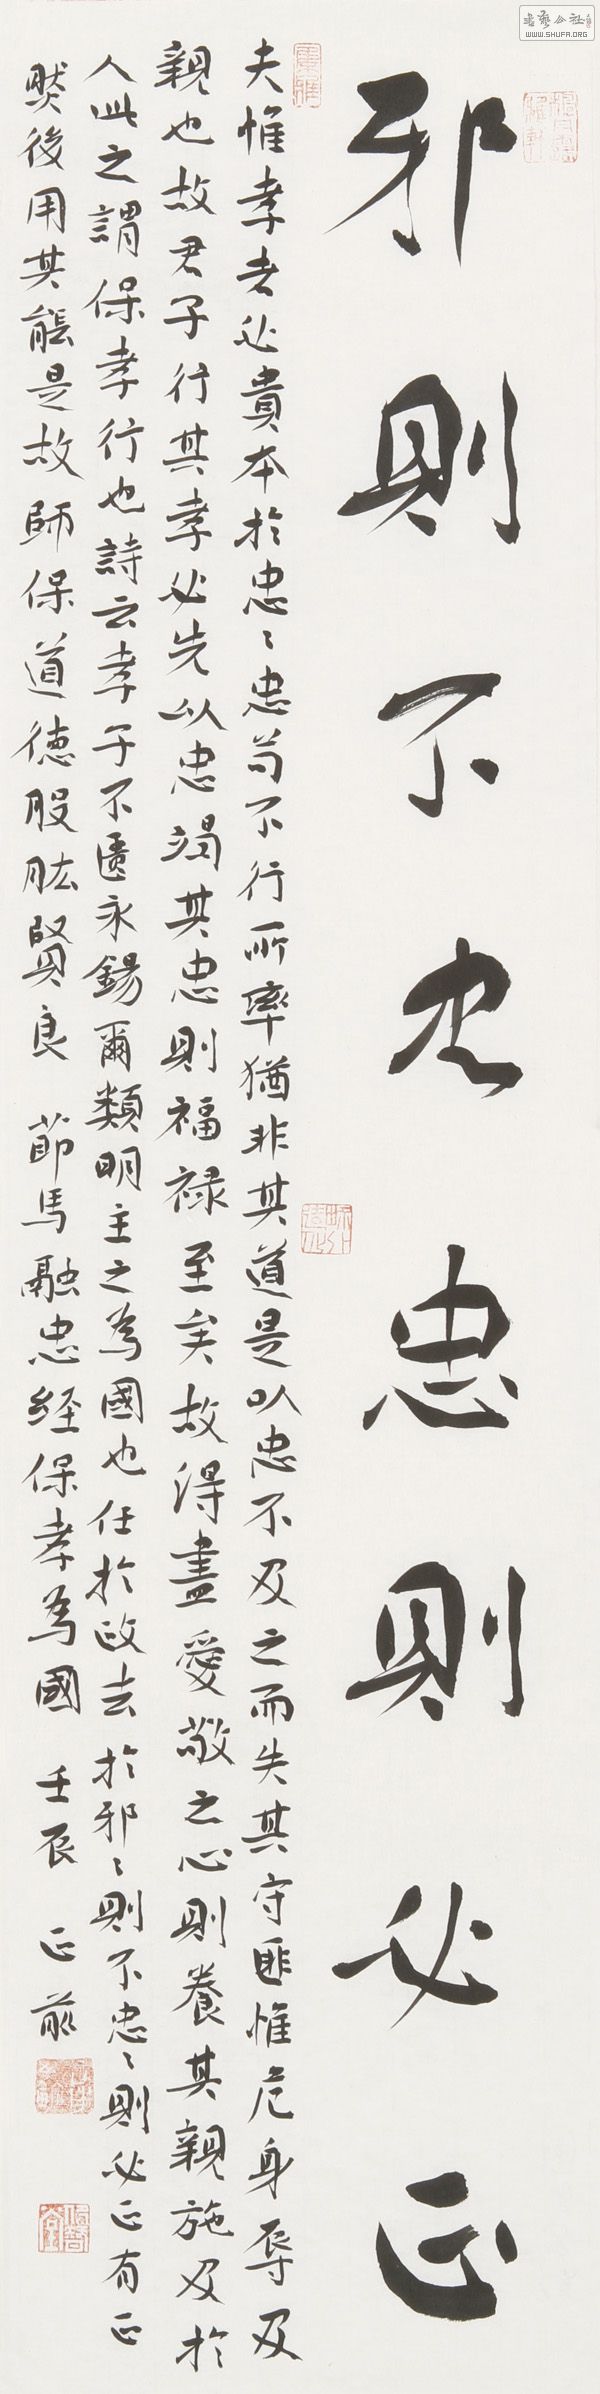 書藝公社
WWW.SHUFA.ORG
邪則不忠忠則必正
夫惟孝者必貴本於忠〻忠苟不行所率猶非其道是以忠不及之而失其守匪惟危身辱及
親也故君子行其孝必先以忠竭其忠則福祿至矣故得盡愛敬之心則養其親施及於
人此之謂保孝行也詩云孝子不匱永錫爾類明主之為國也任於政去於邪〻則不忠〻則必正有正
然後用其能是故師保道德股肱賢良 節馬融忠經保孝為國 壬辰 正前